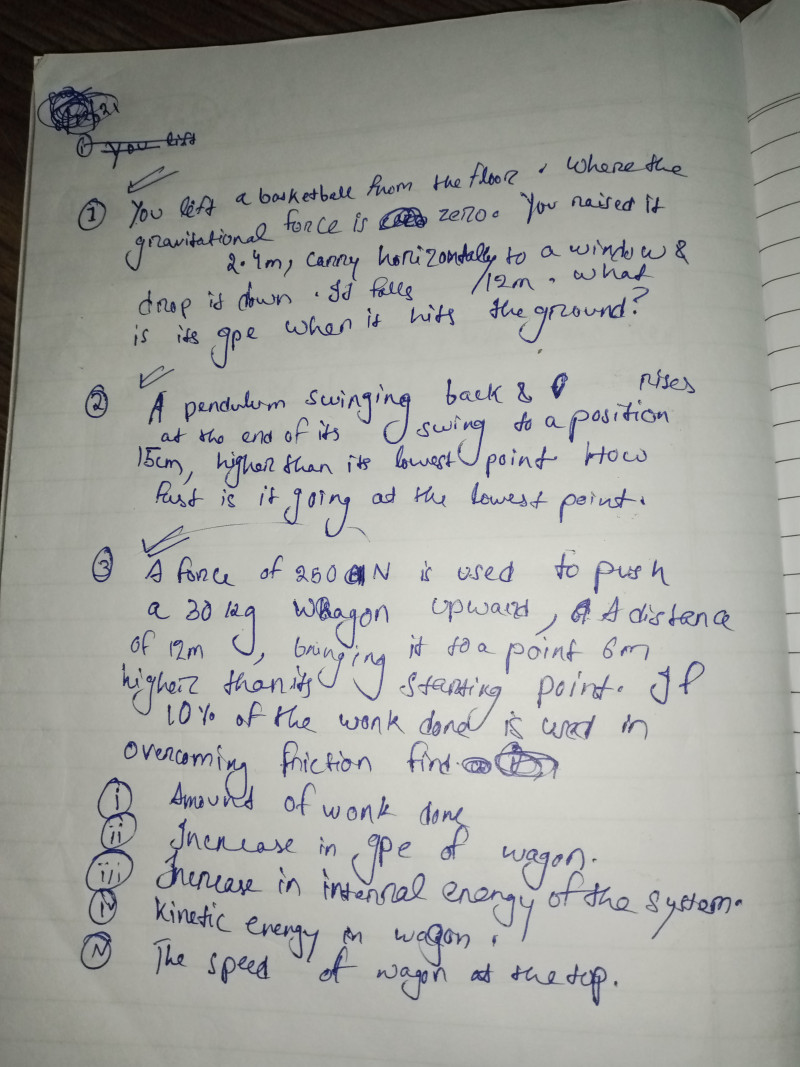 ① You lift
① You left a basketball from the floor. Where the
gravitational force is zero. You raised it
2.4m, carry horizontally to a window &
drop it down. It falls /12m. what
is its gpe when it hits the ground?
② A pendulum swinging back & rises
at the end of its swing to a position
15cm, higher than its lowest point. How
fast is it going at the lowest point.
③ A force of 250 N is used to push
a 30 kg wagon upward, A distance
of 12m, bringing it to a point 6m
higher than its starting point. If
10% of the work done is used in
overcoming friction find
i Amount of work done
ii Increase in gpe of wagon.
iii Increase in internal energy of the system.
iv Kinetic energy in wagon.
v The speed of wagon at the top.